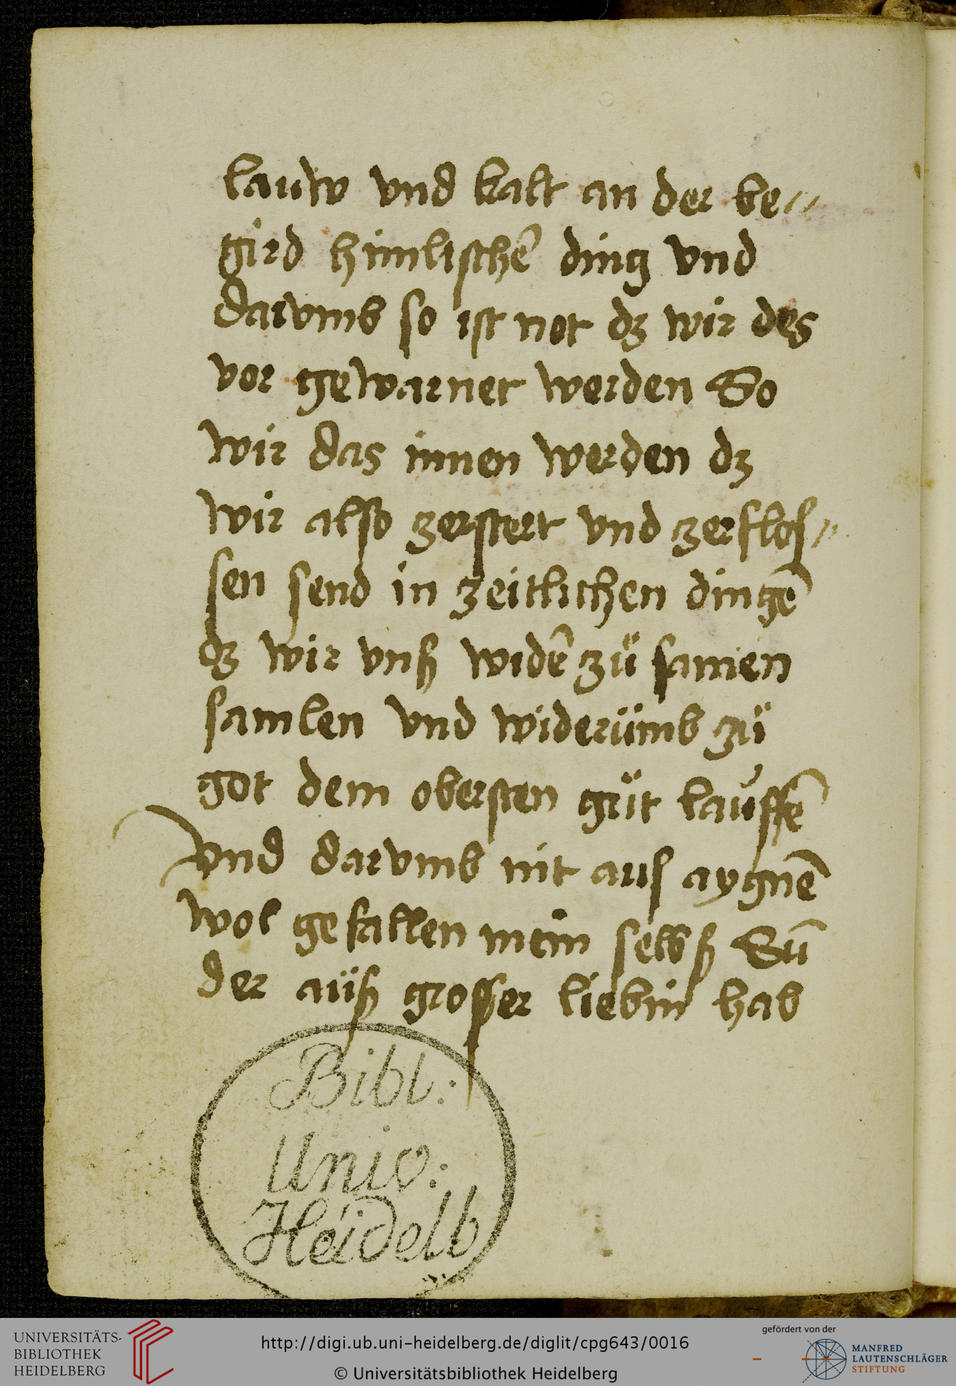 lauw vnd kalt an der be〃
gird himlischē ding vnd
darvmb so ist not dʒ wir des
vor gewarnet werden So
wir das innen werden dʒ
wir also zerstert vnd zerflos〃
sen send in zeitlichen dingē
dʒ wir vnß widē zü samen
samlen vnd widerümb zü
got dem obersten güt lauffē
Vnd darvmb nit aus aygnē
wol gefallen mein selbß Sū
der auß grosser liebin hab
Bibl:
Univ:
Heidelb
UNIVERSITÄTS-
BIBLIOTHEK
HEIDELBERG
http://digi.ub.uni-heidelberg.de/diglit/cpg643/0016
© Universitätsbibliothek Heidelberg
gefördert von der
MANFRED
LAUTENSCHLÄGER
STIFTUNG